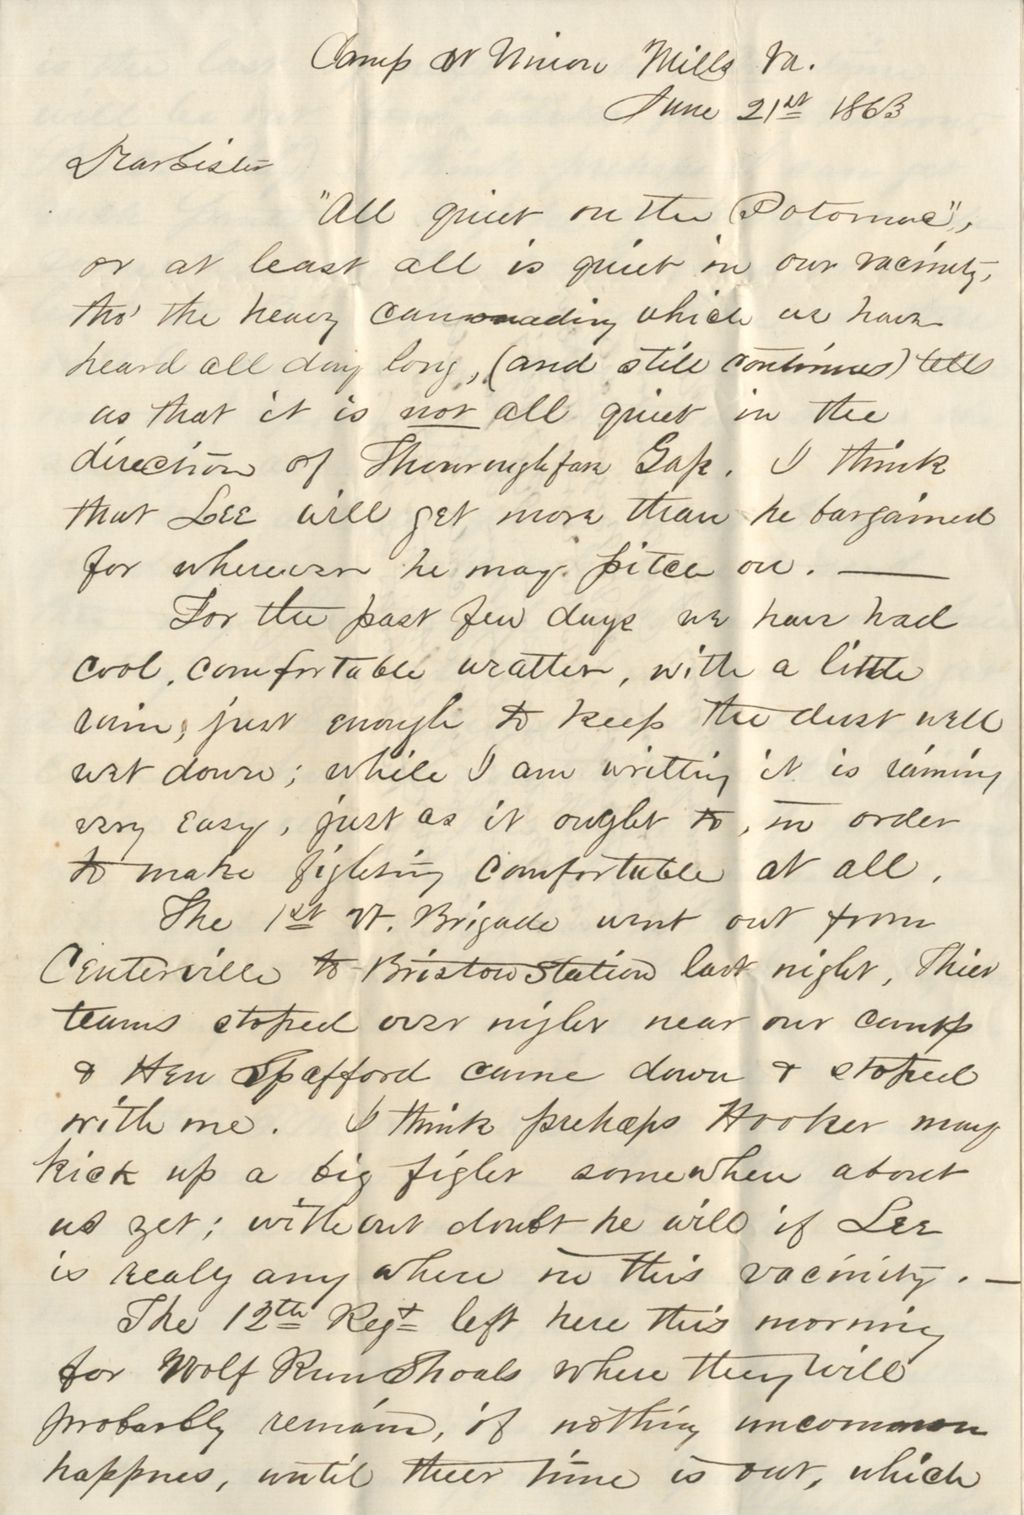 Camp at Union Mills Va.
June 21st 1863
Dear Sister
"All quiet on the Potomac",
or at least all is quiet in our vacinity,
tho' the heavy cannonading which we have
heard all day long, (and still continues) tells
us that it is not all quiet in the
direction of Thouroughfare Gap. I think
that LEE will get more than he bargained
for wherever he may pitch on. —
For the past few days we have had
cool, comfortable weather, with a little
rain, just enough to keep the dust well
wet down; while I am writting it is raining
very easy, just as it ought to, in order
to make fighting comfortable at all.
The 1st Vt. Brigade went out from
Centerville to Bristow Station last night, Thier
teams stoped over night near our camp
& Hen Spafford came down & stoped
with me. I think prehaps Hooker may
kick up a big fight somewhere about
us yet; without doubt he will if LEE
is realy any where in this vacinity. —
The 12th Regt left here this morning
for Wolf Run Shoals where they will
probarbly remain, if nothing uncommon
happnes, until their time is out, which